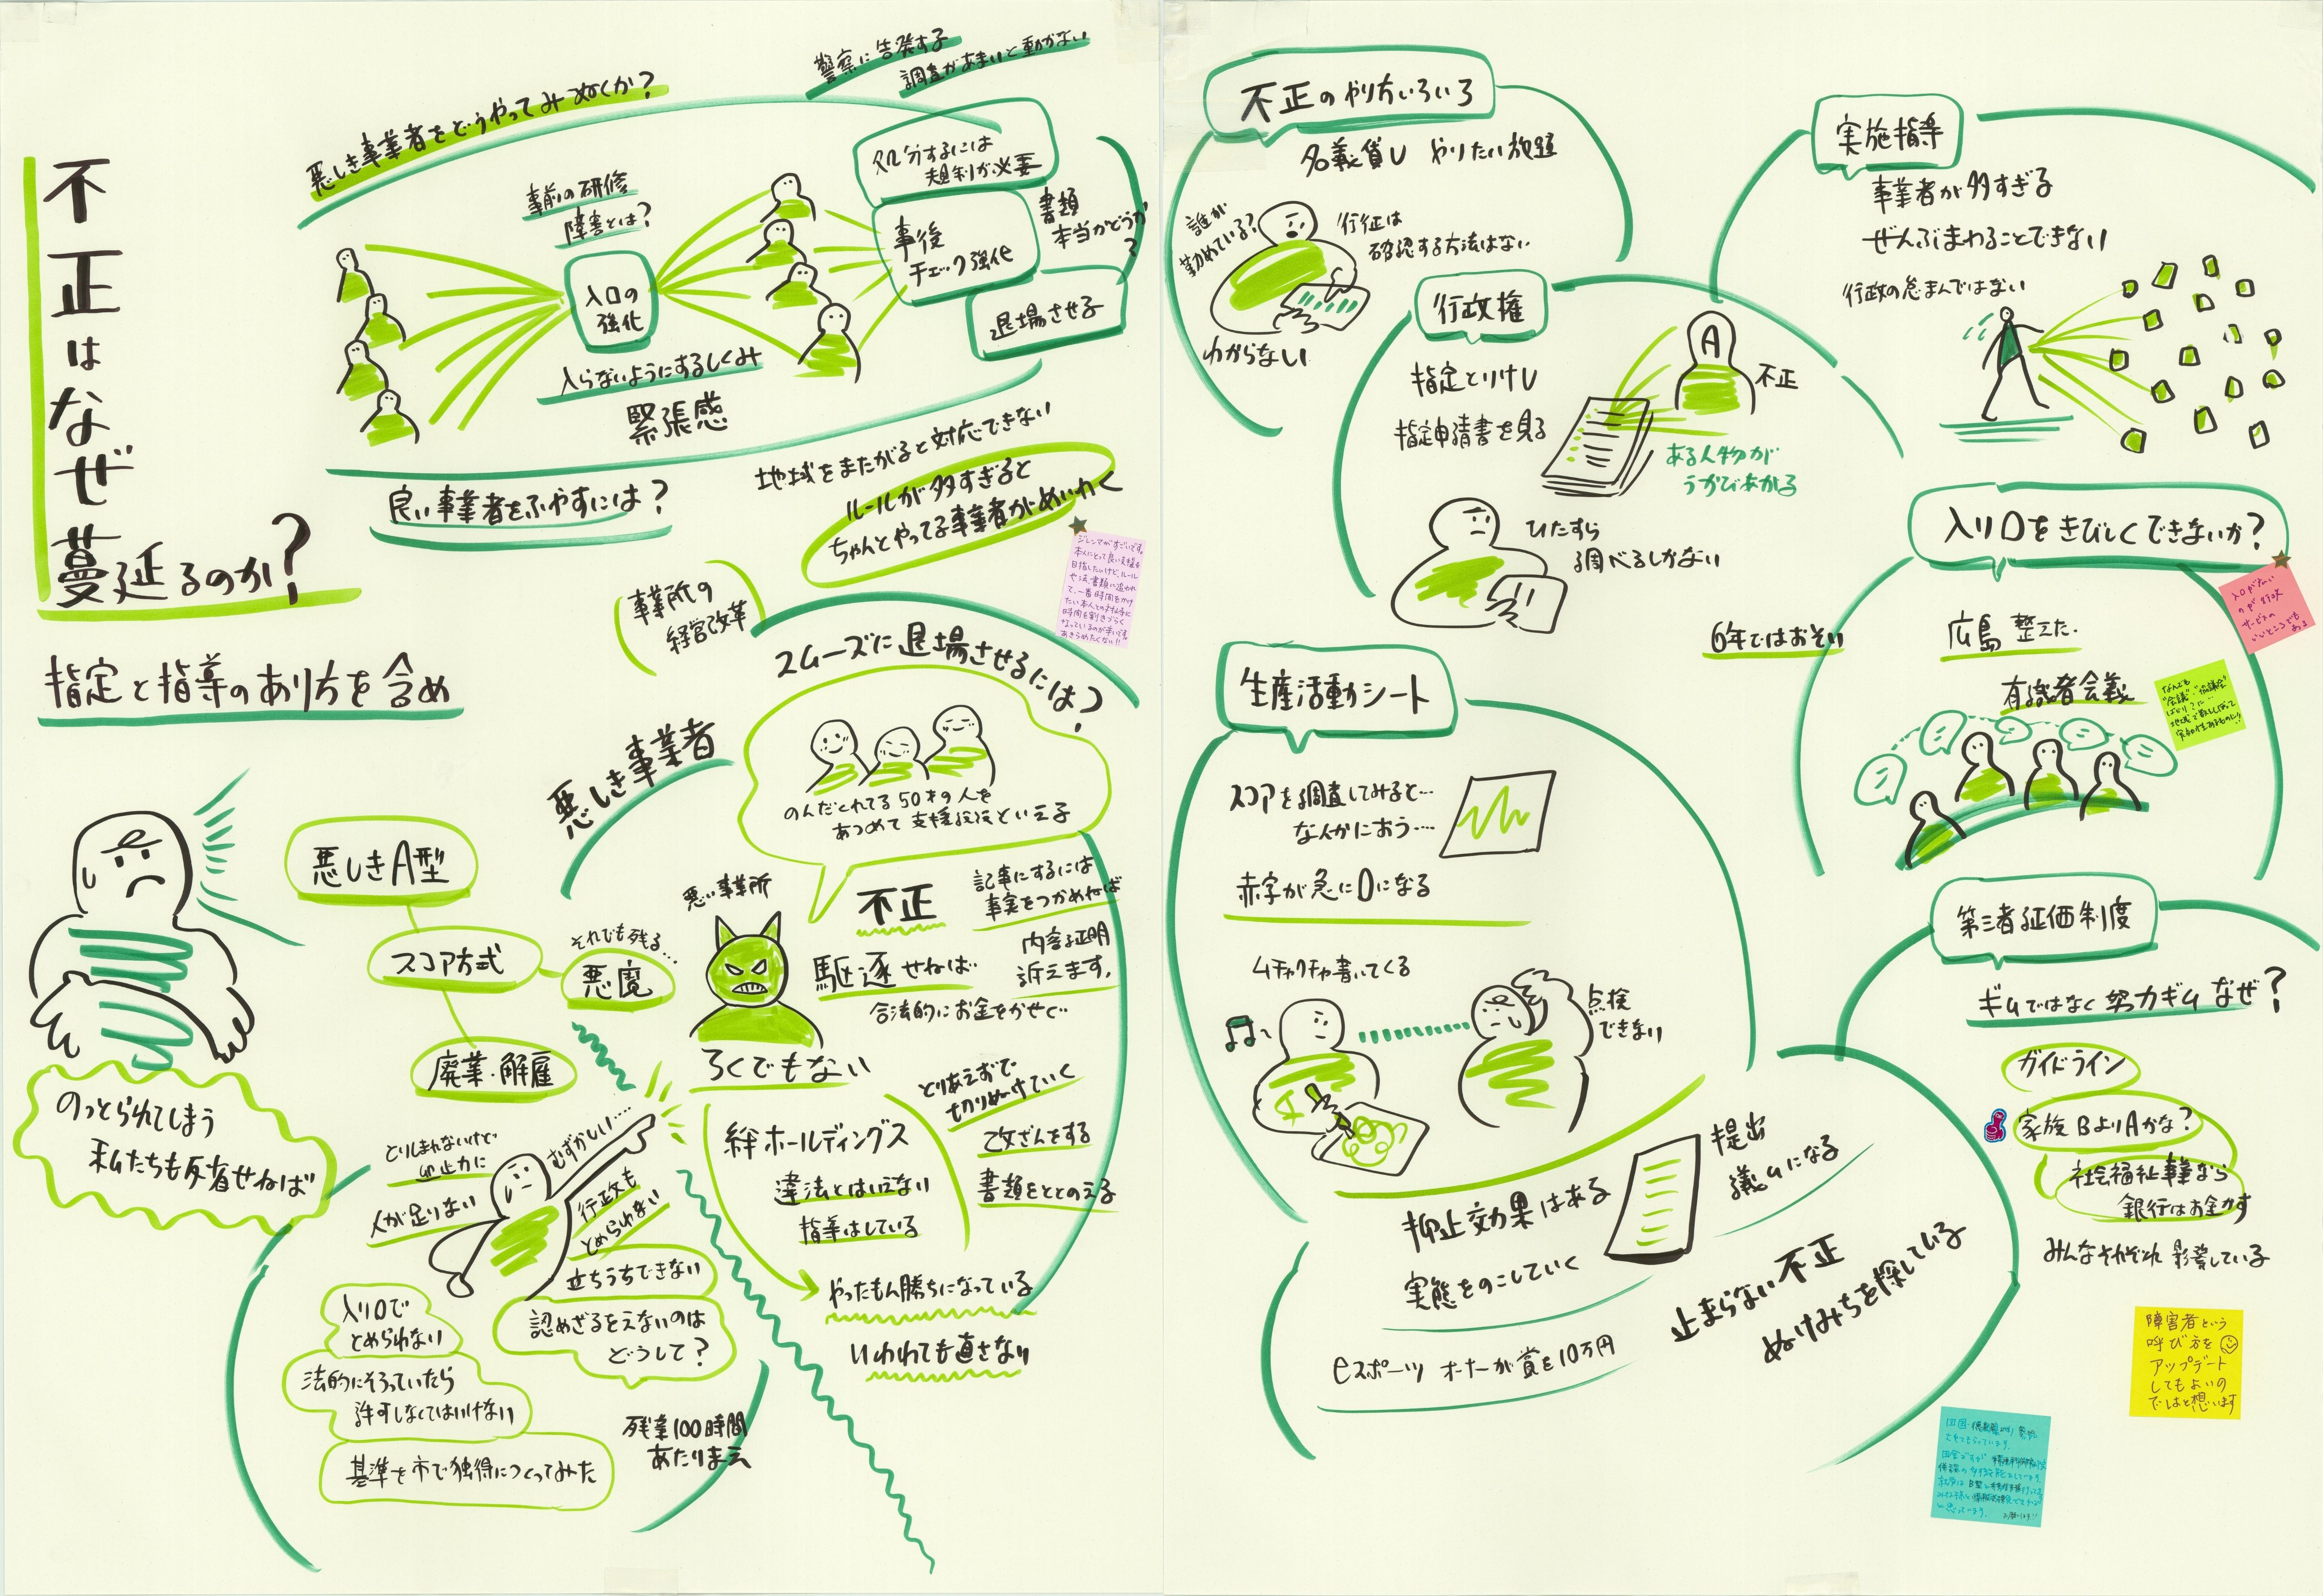 不正はなぜ
蔓延るのか?
指定と指導のあり方を含め
悪しき事業者をどうやってみぬくか?
警察に告発する
調査があまいと動かない
事前の研修
障害とは?
入口の
強化
入らないようにするしくみ
緊張感
処分するには
規制が必要
事後
チェック強化
書類
本当かどうか
?
退場させる
良い事業者をふやすには?
地域をまたがると対応できない
ルールが多すぎると
ちゃんとやってる事業者がめいわく
ジレンマがすごいです。
事業所の
経営改革
スムーズに退場させるには?
のんだくれてる50才の人を
あつめて支援
といえる
悪しき事業者
悪い事業所
不正
記事にするには
事実をつかめねば
駆逐せねば
内容証明
訴えます。
合法的にお金をかせぐ…
ろくでもない
とりあえずで
切りぬけていく
絆ホールディングス
違法とはいえない
指導はしている
改ざんをする
書類をととのえる
やったもん勝ちになっている
いわれても直さない
悪しきA型
スコア方式
それでも残る…
悪魔
廃業・解雇
のっとられてしまう
私たちも反省せねば
とりしまれないけど
抑止力に
むずかしい……
人が足りない
行政も
とめられない
立ちうちできない
認めざるをえないのは
どうして?
入り口で
とめられない
法的にそろっていたら
許可しなくてはいけない
基準を市で独得につくってみた
残業100時間
あたりまえ
不正のやり方いろいろ
名義貸し やりたい放題
誰が
勤めている?
行政は
確認する方法はない
わからない
行政権
指定とりけし
指定申請書を見る
A
不正
ある人物が
うかびあがる
ひたすら
調べるしかない
実施指導
事業者が多すぎる
ぜんぶまわることできない
行政の怠まんではない
入り口をきびしくできないか?
6年ではおそい
広島 整えた.
有識者会議
生産活動シート
スコアを調査してみると…
なんかにおう…
赤字が急に0になる
ムチャクチャ書いてくる
点検
できない
抑止効果はある
提出
義ムになる
実態をのこしていく
eスポーツ オーナーが賞を10万円
止まらない不正
ぬけみちを探している
第三者評価制度
ギムではなく努力ギム なぜ?
ガイドライン
家族BよりAかな?
社会福祉事業なら
銀行はお金かす
みんなそれぞれ影響している
障害者という
呼び方を
アップデート
してもよいの
ではと想います